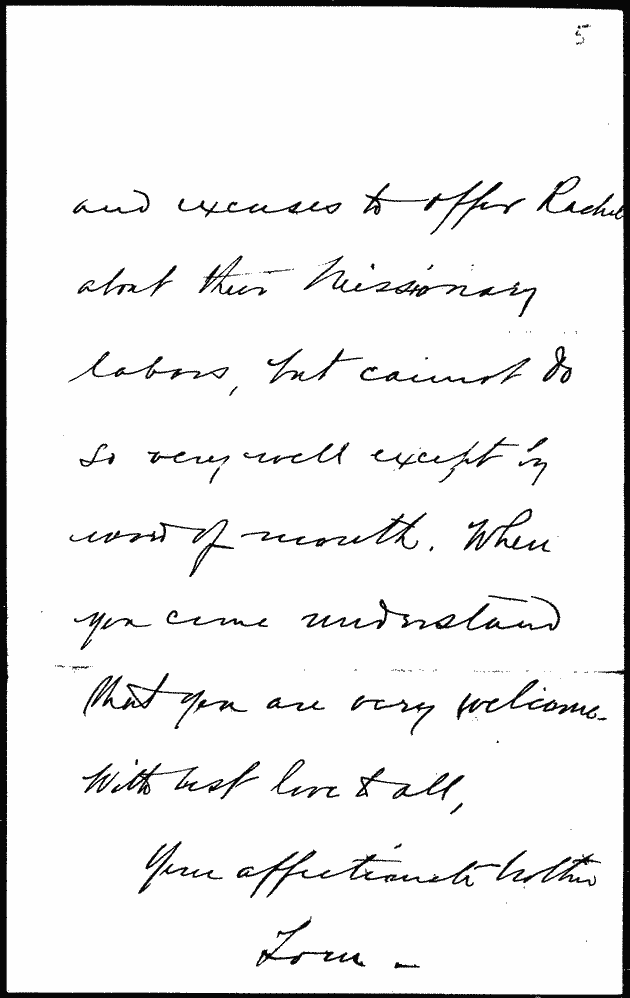 5
and excuses to offer Rachel
about their Missionary
labors, but cannot do
so very well except by
word of mouth. When
you come understand
that you are very welcome.
With best love to all,
Your affectionate brother
Tom -